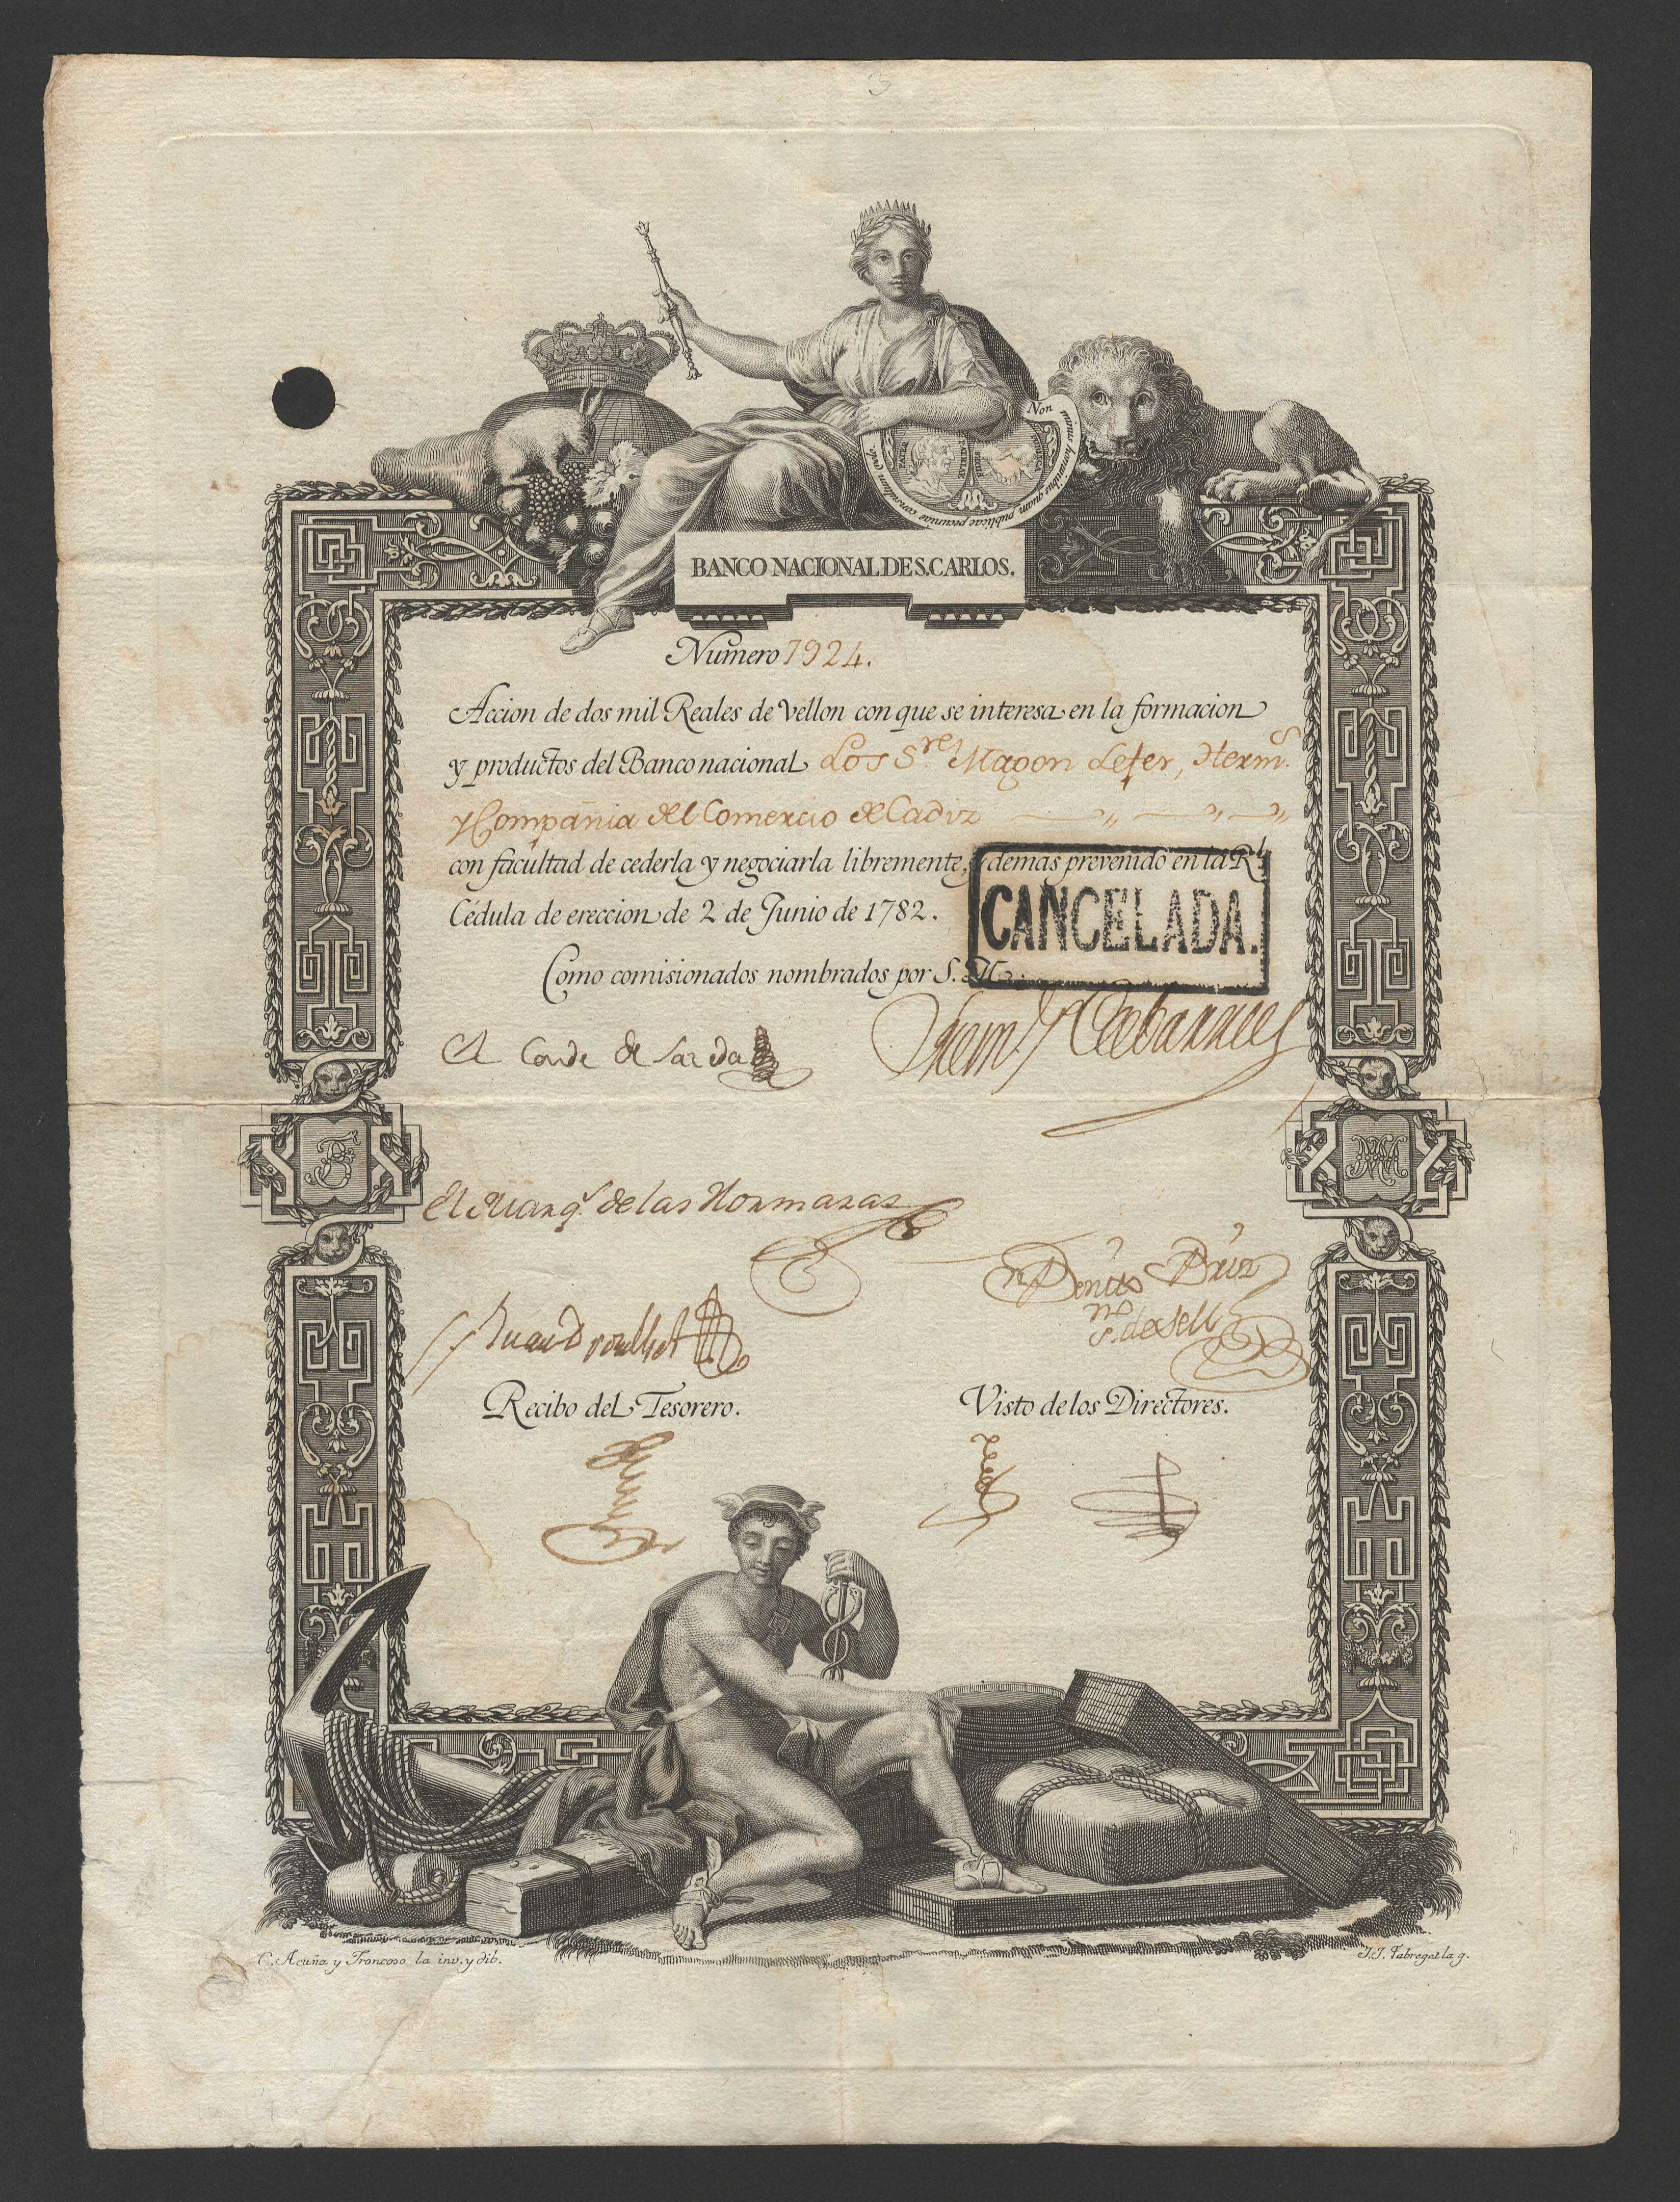 Non minus hominibus quam publicae pecuniae
PATER PATRIAE
BANCO NACIONAL DE S. CARLOS.
Numero 7924.
Accion de dos mil Reales de Vellon con que se interesa en la formacion
y productos del Banco nacional Los S.res Magon Lefer, Herm.s
y Compañia del Comercio de Cadiz
con facultad de cederla y negociarla libremente, y demas prevenido en la R.l
Cédula de ereccion de 2 de Junio de 1782.
CANCELADA.
Como comisionados nombrados por S. M.
El Conde de
El Marq.s de las Hormazas
Juan Drouilhet
Benito Briz
Recibo del Tesorero.
Visto de los Directores.
C. Acuña y Troncoso la inv. y dib.
J.J. Fabregat la g.